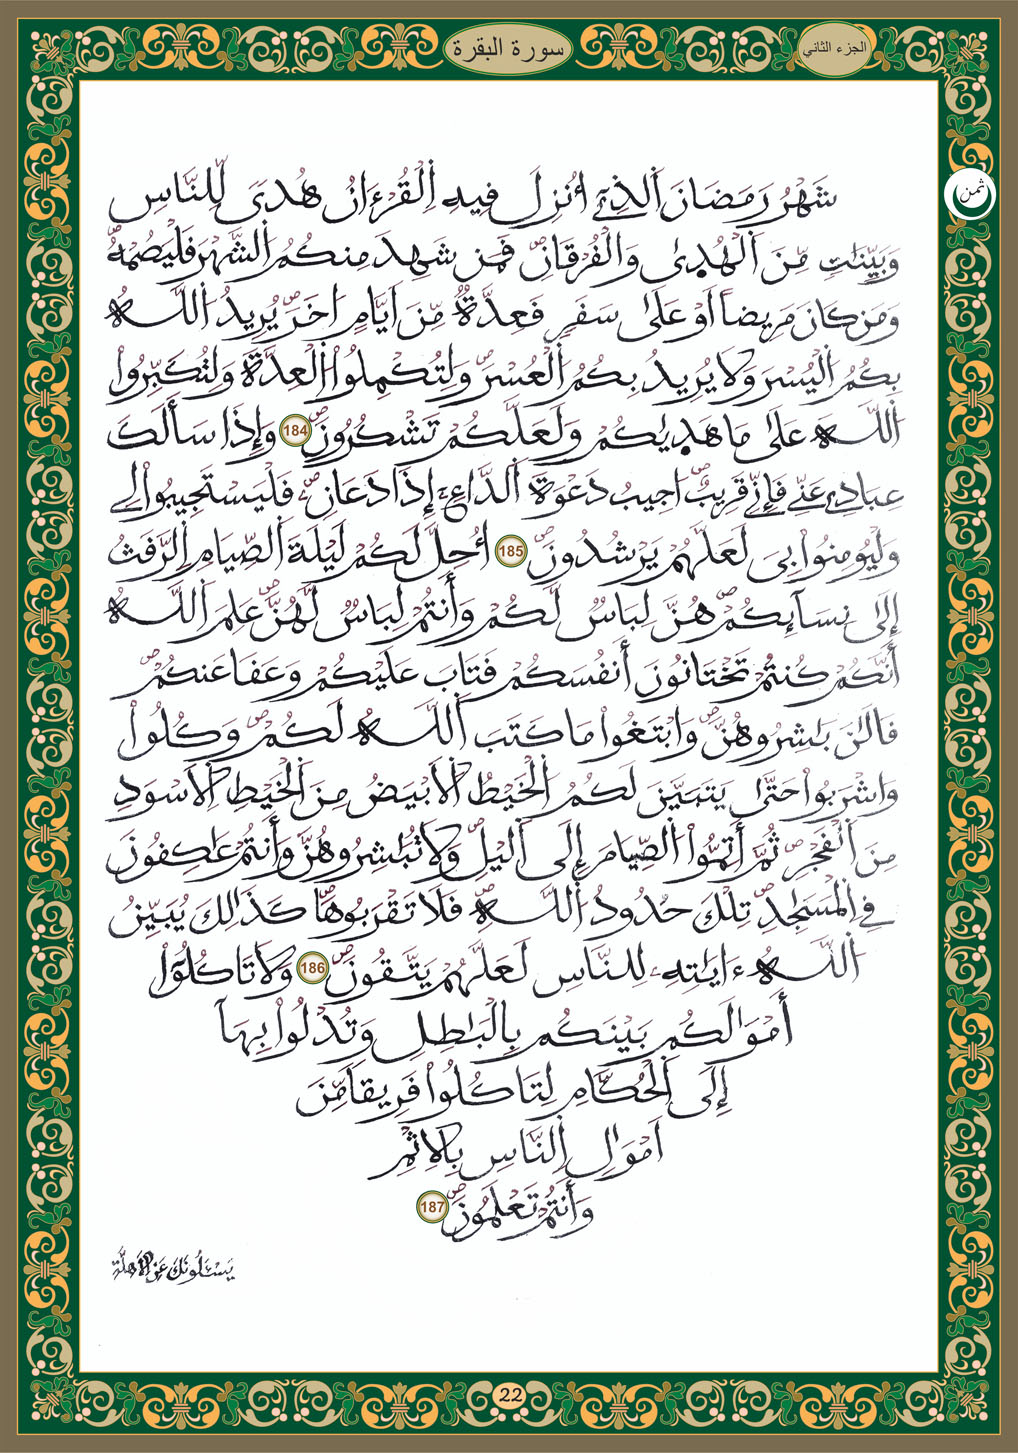 الجزء الثاني
سورة البقرة
ثمن
شَهْرُ رَمَضَانَ اَلذِےٓ أُنزِلَ فِيهِ اِلْقُرْءَانُ هُدىٗ لِّلنَّاسِ
وَبَيِّنَٰتٖ مِّنَ اَلْهُد۪ىٰ وَالْفُرْقَانِۖ فَمَن شَهِدَ مِنكُمُ اُلشَّهْرَ فَلْيَصُمْهُۖ
وَمَن كَانَ مَرِيضاً اَوْ عَلَىٰ سَفَرٖ فَعِدَّةٞ مِّنَ اَيَّامٍ اُخَرَۖ يُرِيدُ اُللَّهُ
بِكُمُ اُلْيُسْرَ وَلَا يُرِيدُ بِكُمُ اُلْعُسْرَۖ وَلِتُكْمِلُواْ اُلْعِدَّةَ وَلِتُكَبِّرُواْ
اُللَّهَ عَلَىٰ مَا هَد۪ىٰكُمْ وَلَعَلَّكُمْ تَشْكُرُونَۖ 184 وَإِذَا سَأَلَكَ
عِبَادِے عَنِّے فَإِنِّے قَرِيبٌۖ اجِيبُ دَعْوَةَ اَلدَّاعِۦٓ إِذَا دَعَانِۦۖ فَلْيَسْتَجِيبُواْ لِے
وَلْيُومِنُواْ بِے لَعَلَّهُمْ يَرْشُدُونَۖ 185 أُحِلَّ لَكُمْ لَيْلَةَ اَلصِّيَامِ اِلرَّفَثُ
إِلَىٰ نِسَآئِكُمْۖ هُنَّ لِبَاسٞ لَّكُمْ وَأَنتُمْ لِبَاسٞ لَّهُنَّۖ عَلِمَ اَللَّهُ
أَنَّكُمْ كُنتُمْ تَخْتَانُونَ أَنفُسَكُمْ فَتَابَ عَلَيْكُمْ وَعَفَا عَنكُمْۖ
فَالَٰنَ بَٰشِرُوهُنَّۖ وَابْتَغُواْ مَا كَتَبَ اَللَّهُ لَكُمْۖ وَكُلُواْ
وَاشْرَبُواْ حَتَّىٰ يَتَبَيَّنَ لَكُمُ اُلْخَيْطُ اُلَابْيَضُ مِنَ اَلْخَيْطِ اِلَاسْوَدِ
مِنَ اَلْفَجْرِۖ ثُمَّ أَتِمُّواْ اُلصِّيَامَ إِلَى اَليْلِۖ وَلَا تُبَٰشِرُوهُنَّ وَأَنتُمْ عَٰكِفُونَ
فِے اِلْمَسَٰجِدِۖ تِلْكَ حُدُودُ اُللَّهِۖ فَلَا تَقْرَبُوهَاۖ كَذَٰلِكَ يُبَيِّنُ
اُللَّهُ ءَايَٰتِهِۦ لِلنَّاسِ لَعَلَّهُمْ يَتَّقُونَۖ 186 وَلَا تَاكُلُوٓاْ
أَمْوَٰلَكُم بَيْنَكُم بِالْبَٰطِلِ وَتُدْلُواْ بِهَآ
إِلَى اَلْحُكَّامِ لِتَاكُلُواْ فَرِيقاٗ مِّنَ
اَمْوَٰلِ اِلنَّاسِ بِالِاثْمِ
وَأَنتُمْ تَعْلَمُونَۖ 187
يَسْـَٔلُونَكَ عَنِ اِلَاهِلَّةِ
22